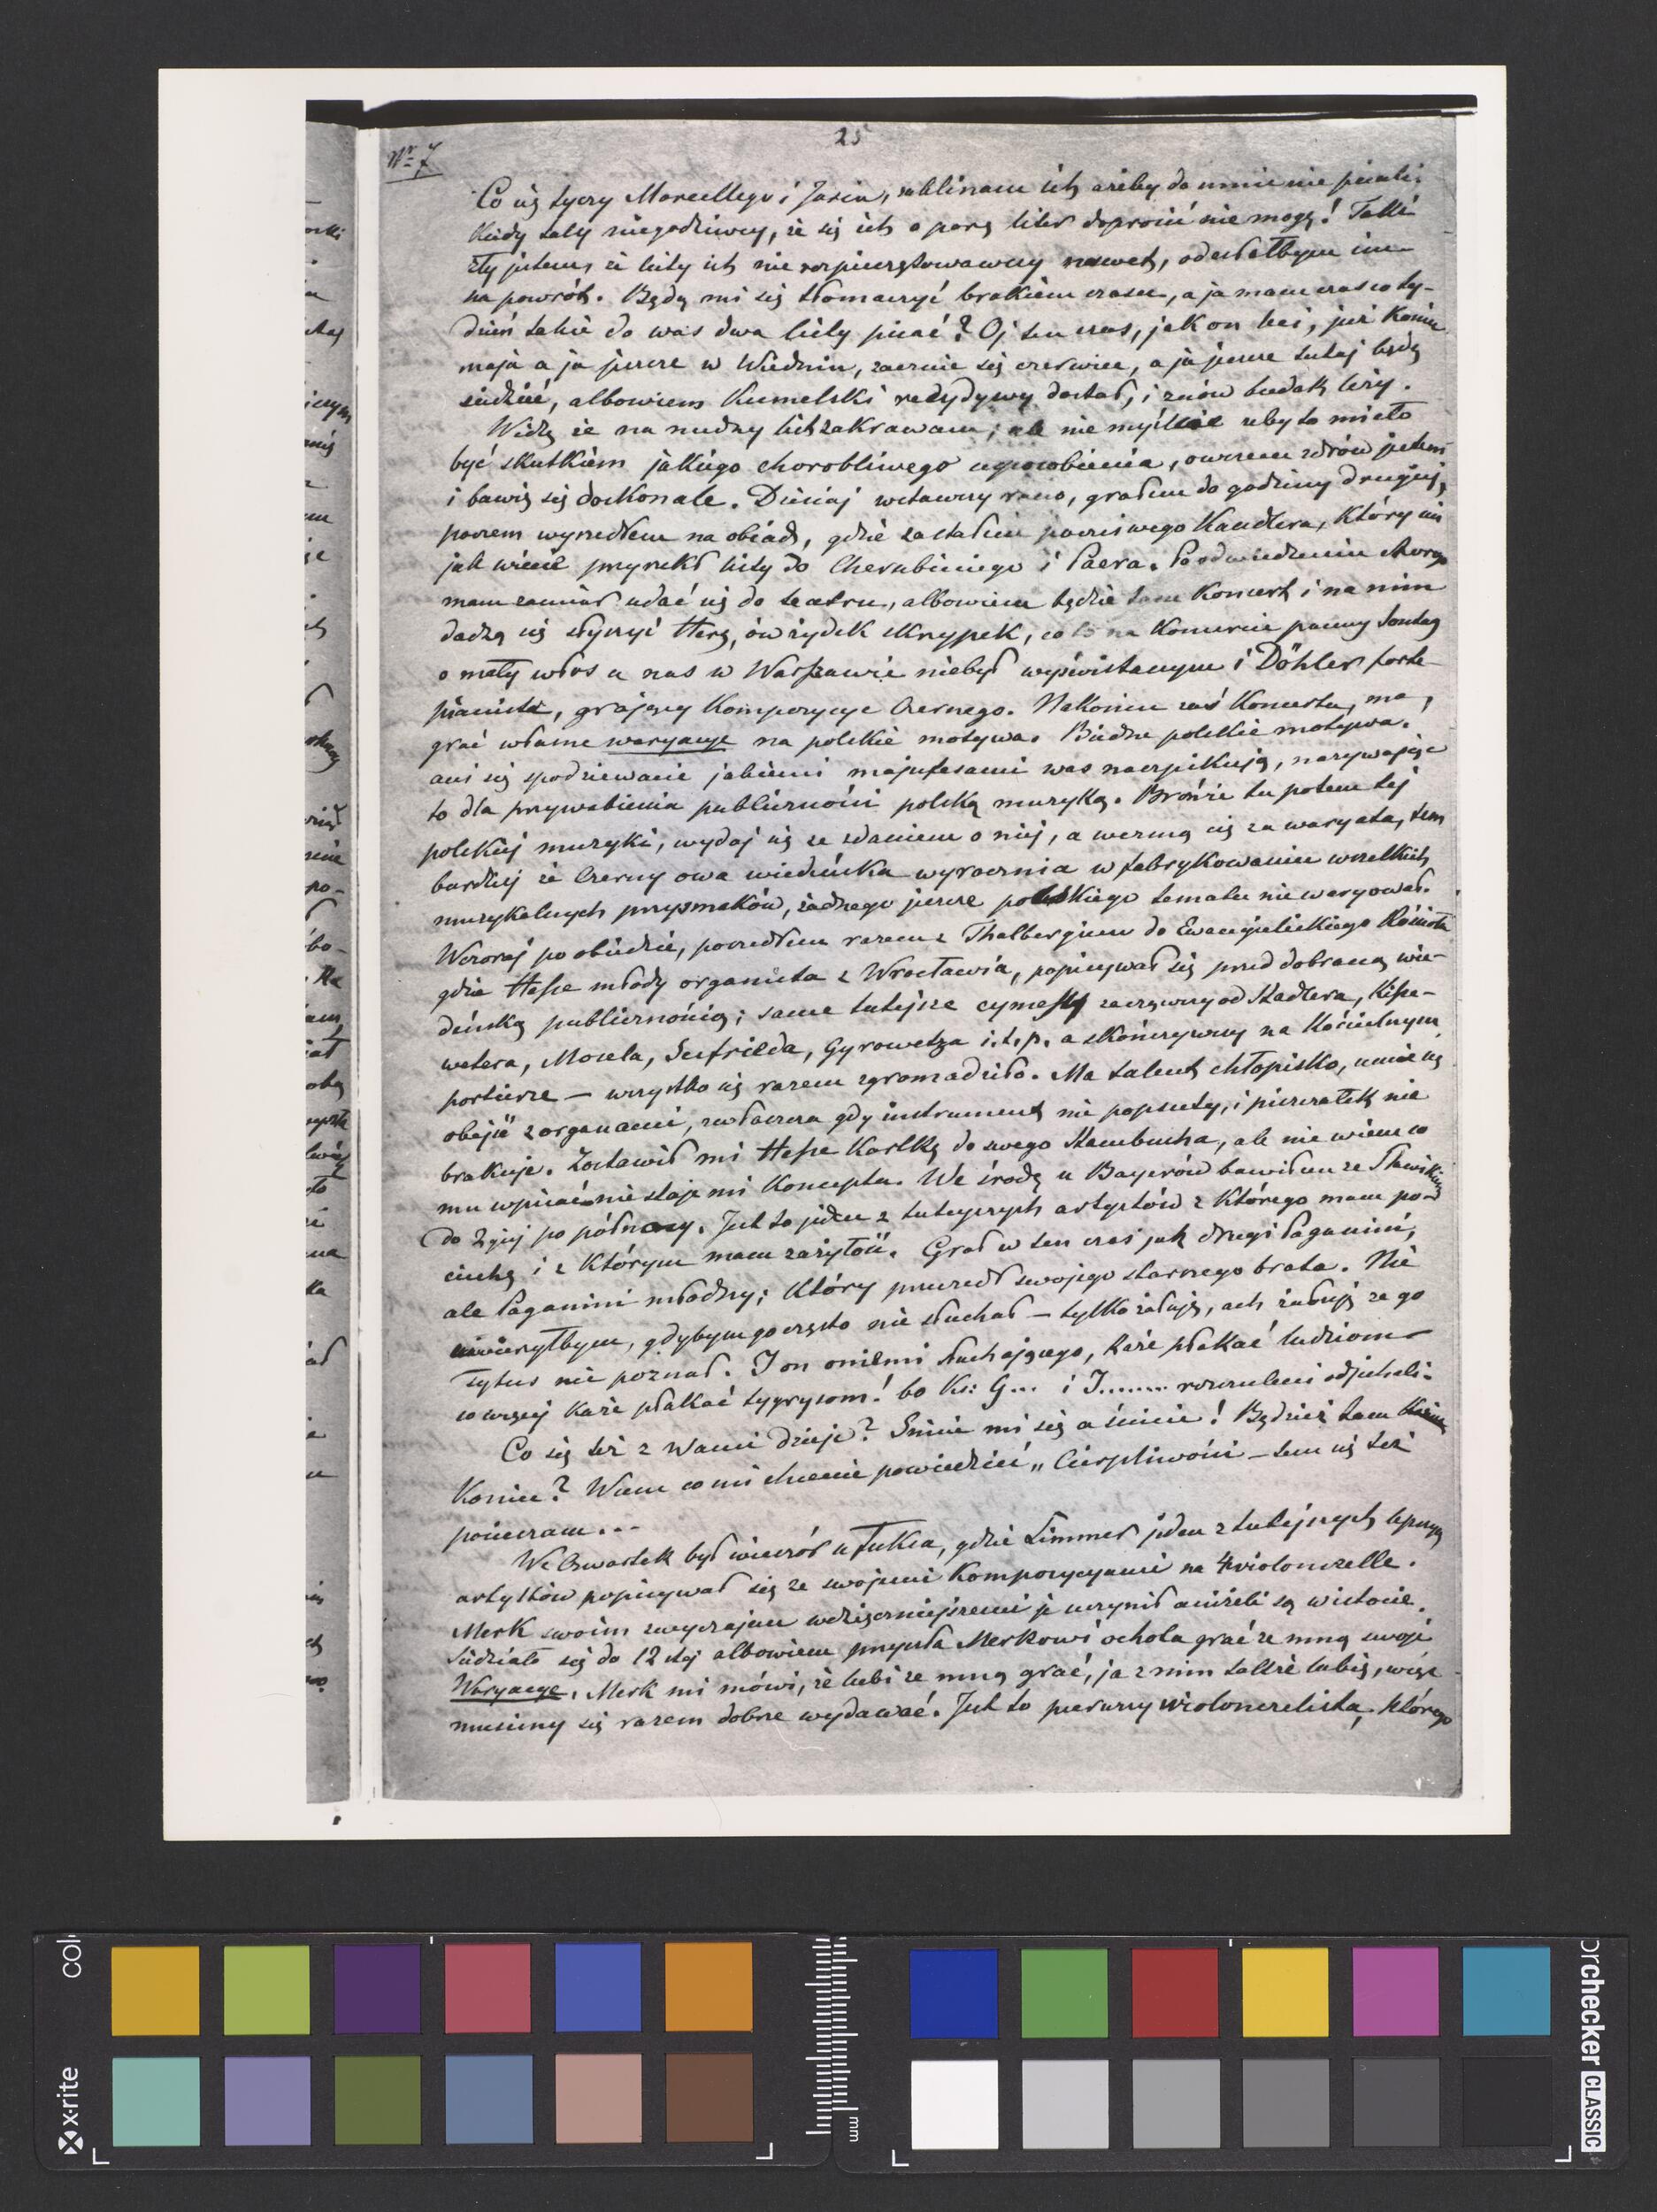 Nr 7
25
Co się tyczy Marcellego i Jasia, zaklinam ich ażeby do mnie nie pisali.
Kiedy tacy niegodziwcy, że się ich o parę liter doprosić nie mogę! Takli
zły jestem, że listy ich nie rozpieczętowawszy nawet, odesłałbym im
na powrót. Będą mi się tłomaczyć brakiem czasu, a ja mam czas co ty-
dzień takie do was dwa listy pisać? Oj ten czas, jak on leci, już koniec
maja a ja jeszcze w Wiedniu, zacznie się czerwiec, a ja jeszcze tutaj będę
siedzieć, albowiem Kumelski recydywy dostał, i znów biedak leży.
Widzę że na nudny list zakrawam; ale nie myślcie żeby to miało
być skutkiem jakiego chorobliwego usposobienia, owszem zdrów jestem
i bawię się doskonale. Dzisiaj wstawszy rano, grałem do godziny drugiej,
poczem wyszedłem na obiad, gdzie zastałem poczciwego Kandlera, który mi
jak wiecie przyrzekł listy do Cherubiniego i Paera. Po odwiedzeniu chorego
mam zamiar udać się do teatru, albowiem będzie tam Koncert i na nim
dadzą się słyszyć Herz, ów żydek skrzypek, co to na Koncercie panny Sontag
o mały włos u nas w Warszawie niebył wyświstanym i Döhler forte-
pianista, grający Kompozycye Czernego. Nakoniec zaś Koncertu, ma
grać własne waryacye na polskie motywa. Biedne polskie motywa.
ani się spodziewacie jakiemi majufesami was naszpikują, nazywając
to dla przywabienia publiczności polską muzyką. Brońże tu potem tej
polskiej muzyki, wydaj się ze zdaniem o niej, a wezmą cię za waryata, tem
bardziej że Czerny owa wiedeńska wyrocznia w fabrykowaniu wszelkich
muzykalnych przysmaków, żadnego jeszcze polskiego tematu nie waryował.
Wczoraj po obiedzie, poszedłem razem z Thalbergiem do Ewangielickiego Kościoła
gdzie Hesse młody organista z Wrocławia, popisywał się przed dobraną wie-
deńską publicznością; same tutejsze cymesy zacząwszy od Stadlera, Kise-
wetera, Mosela, Seifrieda, Gyrowetza i.t.p. a skończywszy na Kościelnym
portierze — wszystko się razem zgromadziło. Ma talent chłopisko, umie się
obejść z organami, zwłaszcza gdy instrument nie popsuty, i piszczałek nie
brakuje. Zostawił mi Hesse Kartkę do swego Stambucha, ale nie wiem co
mu wpisać nie staje mi Konceptu. We środę u Bayerów bawiłem ze Slawikiem
do 2giej po północy. Jest to jeden z tutejszych artystów z którego mam po-
ciechę i z którym mam zażyłość. Grał w ten czas jak drugi Paganini,
ale Paganini młodszy; który przeszedł swojego starszego brata. Nie
uwierzyłbym, gdybym go często nie słuchał — tylko żałuję, ach żałuję że go
Tytus nie poznał. I on oniemi słuchającego, każe płakać ludziom
co więcej każe płakać tygrysom! bo Ks: G... i I........ rozczuleni odjechali.
Co się też z Wami dzieje? Śnicie mi się a śnicie! Będzież tam
Koniec? Wiem co mi chcecie powiedzieć „Cierpliwości – tem się też
pocieszam...
We Czwartek był wieczór u Fuksa, gdzie Limmer jeden z tutejszych lepszych
artystów popisywał się ze swojemi Kompozycyami na 4 violonczelle.
Merk swoim zwyczajem wdzięczniejszemi je uczynił aniżeli są w istocie.
Siedziało się do 12stej albowiem przyszła Merkowi ochota grać ze mną swoje
Waryacye. Merk mi mówi, że lubi ze mną grać, ja z nim takżé lubię, więc
musimy się razem dobrze wydawać. Jest to pierwszy violonczelista, którego
x-rite
mm
orchecker CLASSIC